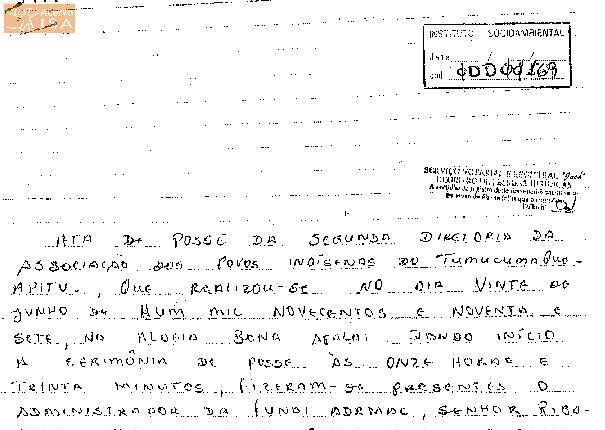 ACERVO
ISA
INSTITUTO SOCIOAMBIENTAL
data / /
cod
ATA DE POSSE DA SEGUNDA DIRETORIA DA
ASSOCIAÇÃO DOS POVOS INDÍGENAS DO TUMUCUMAQUE-
APITU., QUE REALIZOU-SE NO DIA VINTE DE
JUNHO DE HUM MIL NOVECENTOS E NOVENTA E
SETE, NA ALDEIA BONA DANDO INÍCIO
A CERIMÔNIA DE POSSE ÀS ONZE HORAS E
TRINTA MINUTOS, FIZERAM-SE PRESENTES O
ADMINISTRADOR DA FUNAI SENHOR